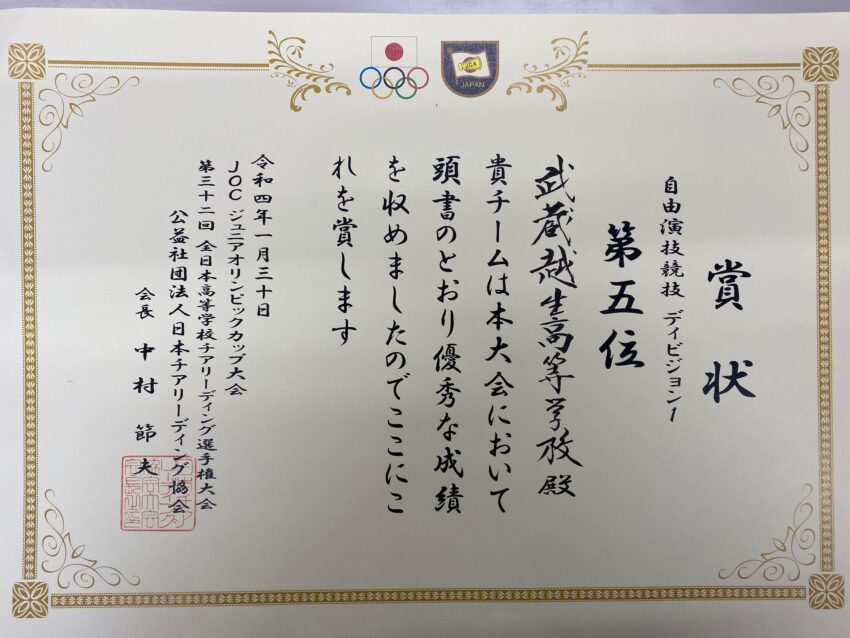 JCA
JAPAN
賞状
自由演技競技 ディビジョン1
第五位
武蔵越生高等学校殿
貴チームは本大会において
頭書のとおり優秀な成績
を収めましたのでここにこ
れを賞します
令和四年一月三十日
JOCジュニアオリンピックカップ大会
第三十二回 全日本高等学校チアリーディング選手権大会
公益社団法人日本チアリーディング協会
会長 中村節夫